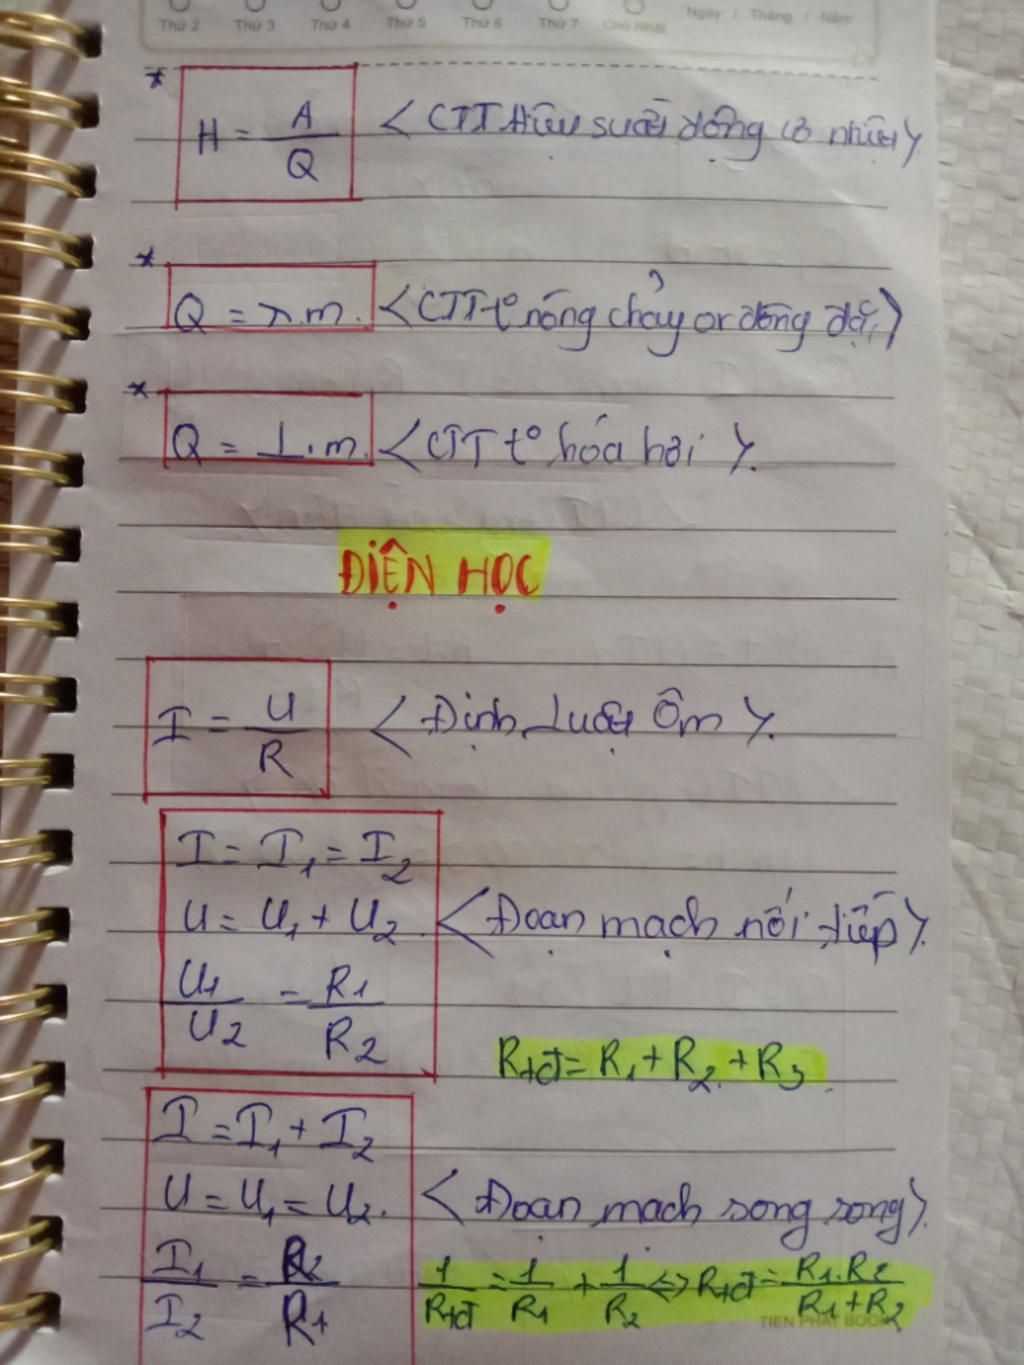 Thứ 2 Thứ 3 Thứ 4 Thứ 5 Thứ 6 Thứ 7 Chủ Nhật Ngày / Tháng / Năm
* H = A/Q < CTT Hiệu suất động cơ nhiệt >.
* Q = λ.m. < CTT t° nóng chảy or đông đặc >
* Q = L.m. < CTT t° hóa hơi >.
ĐIỆN HỌC
I = U/R < Định Luật Ôm >.
I = I1 = I2
U = U1 + U2. < Đoạn mạch nối tiếp >.
U1/U2 = R1/R2
Rtđ = R1 + R2 + R3
I = I1 + I2
U = U1 = U2. < Đoạn mạch song song >.
I1/I2 = R2/R1
1/Rtđ = 1/R1 + 1/R2 <=> Rtđ = R1.R2/R1+R2
TIEN PHAT BOOK